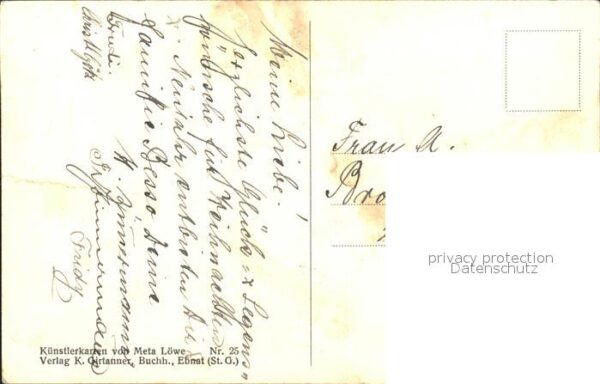 Meine Liebe!
Herzlichste Glück- & Segens-
wünsche für Weihnachten
& Neujahr entbieten Dir
Familie Besso, Deine
H. Zimmermann
Fridy
Frau A.
Bro
privacy protection
Datenschutz
Künstlerkarten von Meta Löwe Nr. 25
Verlag K. Girtanner, Buchh., Ebnat (St. G.)